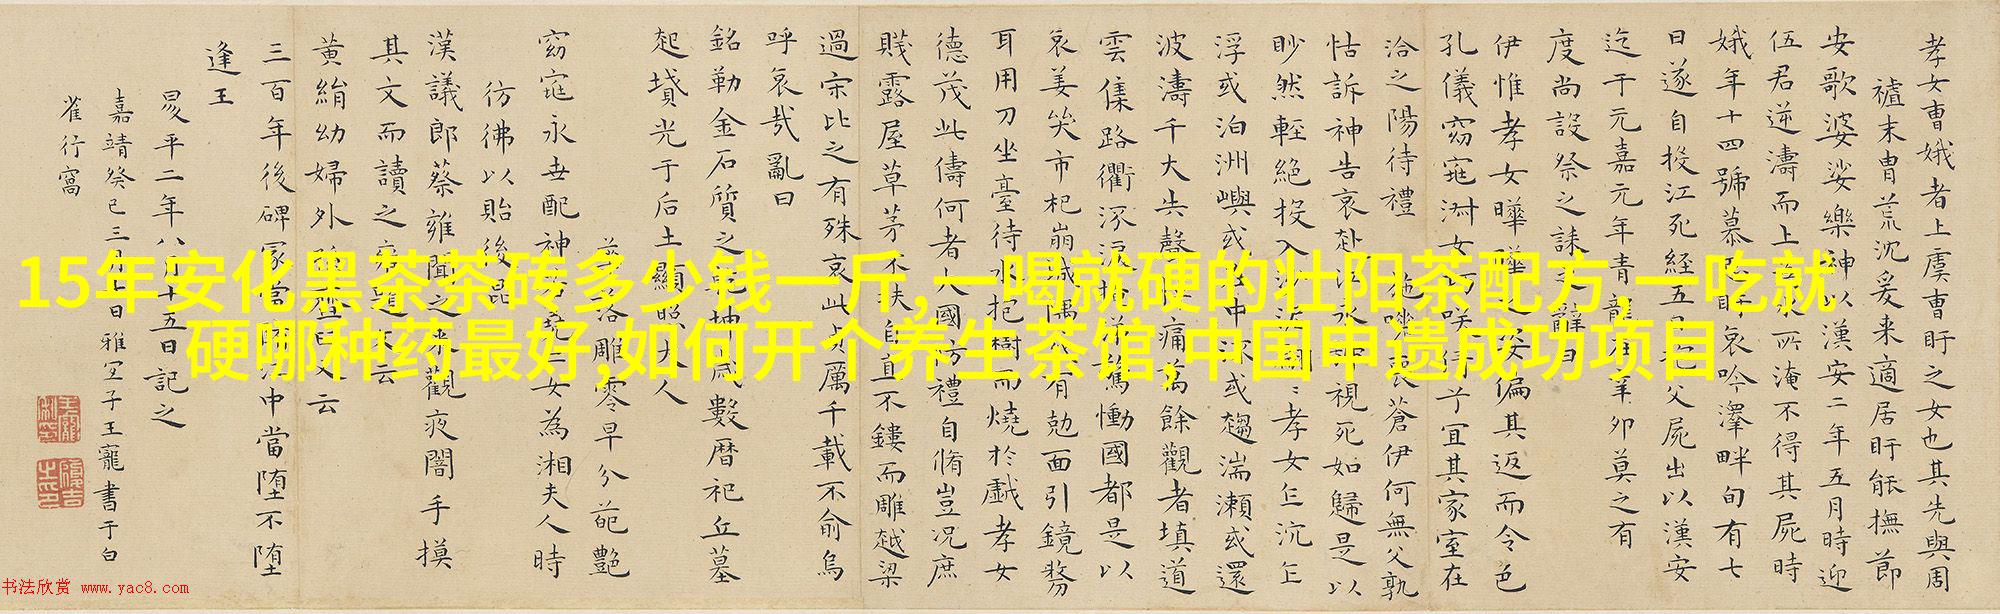 15年安化黑茶茶砖多少钱一斤,一喝就硬的壮阳茶配方,一吃就
硬哪种药最好,如何开个养生茶馆,中国申遗成功项目
孝女曹娥者上虞曹盱之女也其先與周
末冑荒沈爰来適居盱能撫節
安歌婆娑樂神以漢安二年五月時迎
伍君逆濤而上為水所淹不得其屍時
娥年十四號慕思盱哀吟澤畔旬有七
日遂自投江死経五日父屍出以漢安
迄于元嘉元年青龍在辛卯莫之有
度尚設祭之誄之辭曰
伊惟孝女曄曄之姿偏其返而令色
孔儀窈窕淑女巧咲倩兮宜其家室在
洽之陽待禮未施嗟喪蒼伊何無父孰
怙訴神告哀赴江永號視死如歸是以
眇然輕絕投入沙泥翩〻孝女乍沉乍
浮或泊洲嶼或在中流或趨湍瀬或還
波濤千夫失聲悼痛萬餘觀者填道
雲集路衢淚掩涕驚慟國都是以
哀姜哭市杞崩城隅或有尅面引鏡剺
耳用刀坐臺待水抱樹而燒於戲孝女
德茂此儔何者大國防禮自脩豈況庶
賤露屋草茅不扶自直不鏤而雕越梁
過宋比之有殊哀此貞厲千載不俞烏
呼哀哉亂曰
銘勒金石質之乾坤歳數暦祀丘墓
起墳光于后土顯照夫人
落雕零早分葩艷
窈窕永世配神若堯二女為湘夫人時
彷彿以貽後昆
漢議郎蔡雍聞之来觀夜闇手摸
其文而讀之雍題文云
黃絹幼婦外孫臼又云
三百年後碑冢當墮江中當墮不墮
逢王
昜平二年八月十五日記之
嘉靖癸巳三月七日雅宜子王寵書于白
雀行窩
书法欣赏 www.yac8.com